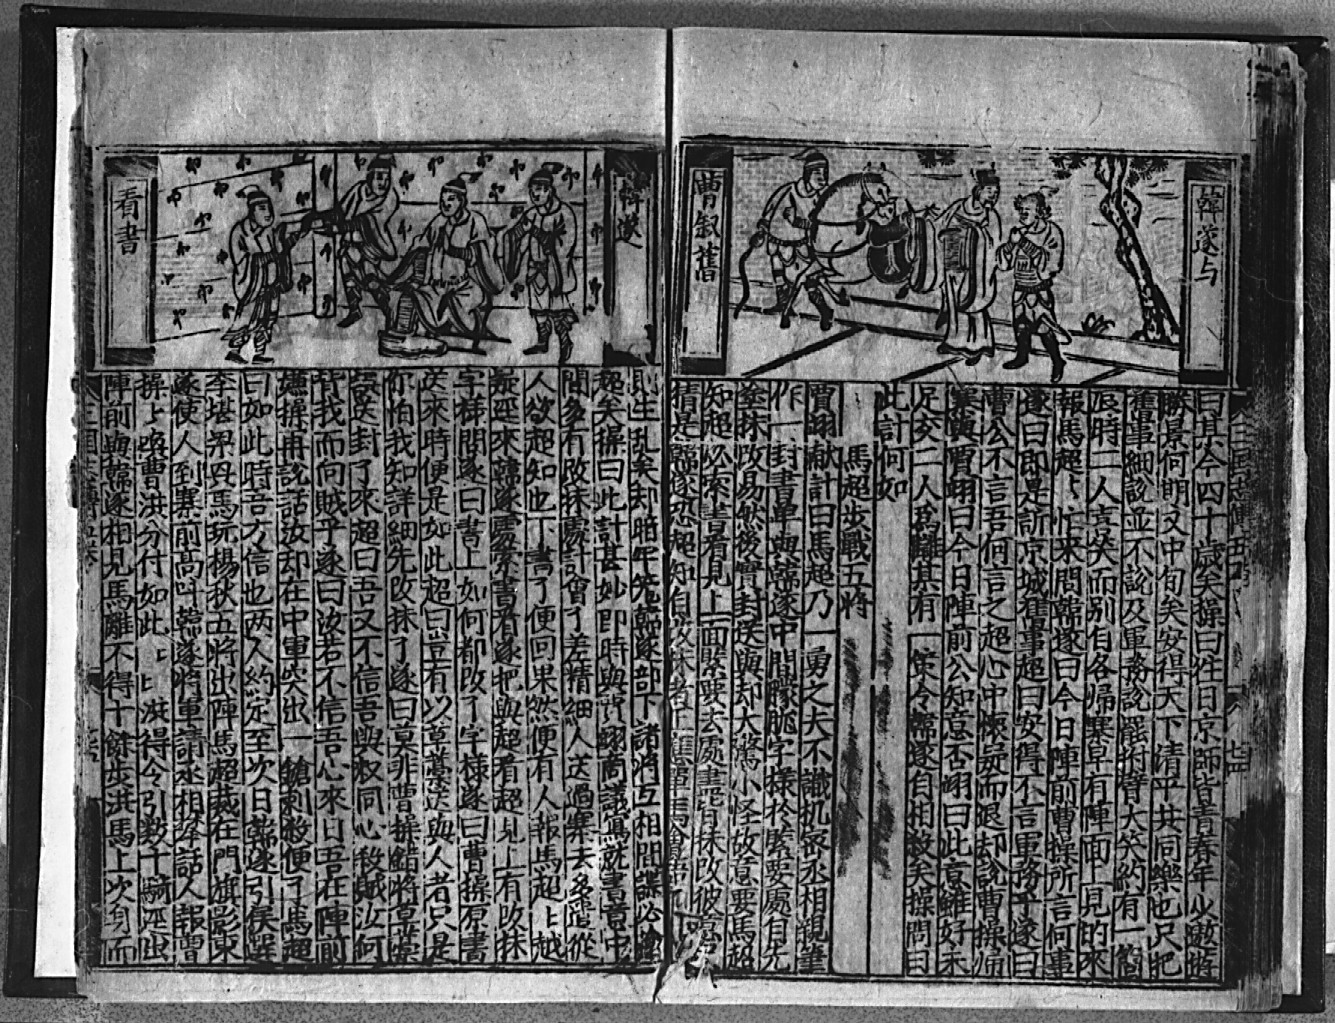 韓遂与
曹叙舊
曰某今四十歲矣操曰往日京師皆青春年少遨遊
勝景何期又中旬矣安得天下清平共同樂也只把
舊事細說並不說及軍務說罷附臂大笑約有一箇
辰時二人喜笑而別自各歸寨早有陣前見的來
報馬超超忙來問韓遂曰今日陣前曹操所言何事
遂曰即是訴京城舊事超曰安得不言軍務乎遂曰
曹公不言吾何言之超心中懷疑而退却說曹操歸
寨與賈詡曰今日陣前公知意否詡曰此意雖好未
足交二人為讎某有一策令韓遂自相殺矣操問曰
此計何如
馬超步戰五將
賈詡献計曰馬超乃一勇之夫不識机密丞相親筆
作一封書单與韓遂中間朦朧字樣於緊要處自先
塗抹改易然後實封送與却大驚小怪故意要馬超
知超必索書看見上面緊要去處盡皆抹改彼
猜是韓遂恐超知自改抹者正應单馬會語
韓遂
看書
則生乱矣却暗年先韓遂部下諸將互相間諜必
超矣操曰此計甚妙即時與賈詡商議寫就書章中
間多有改抹處計會了差精細人送過寨去多遣從
人欲超知也下書了便回果然便有人報馬超超越
疑逕來韓遂處索書看遂把與超看超見上有改抹
字樣問遂曰書上如何都改了字樣遂曰曹操原書
送來時便是如此超曰豈有以草藁送與人者只是
你怕我知詳細先改抹了遂曰莫非曹操錯將草藁
誤送封了來超曰吾又不信吾與叔同心殺賊汝何
背我而向賊乎遂曰汝若不信吾心來日吾在陣前
嫌操再說話汝却在中軍突出一鎗刺殺便了馬超
曰如此時吾方信也两人約定至次日韓遂引侯選
李堪梁興馬玩楊秋五將出陣馬超藏在門旗影東
遂使人到寨前高叫韓遂將軍請丞相荅話人報曹
操操喚曹洪分付如此如此洪得令引数十騎逕出
陣前與韓遂相見馬離不得十餘步洪馬上欠身而